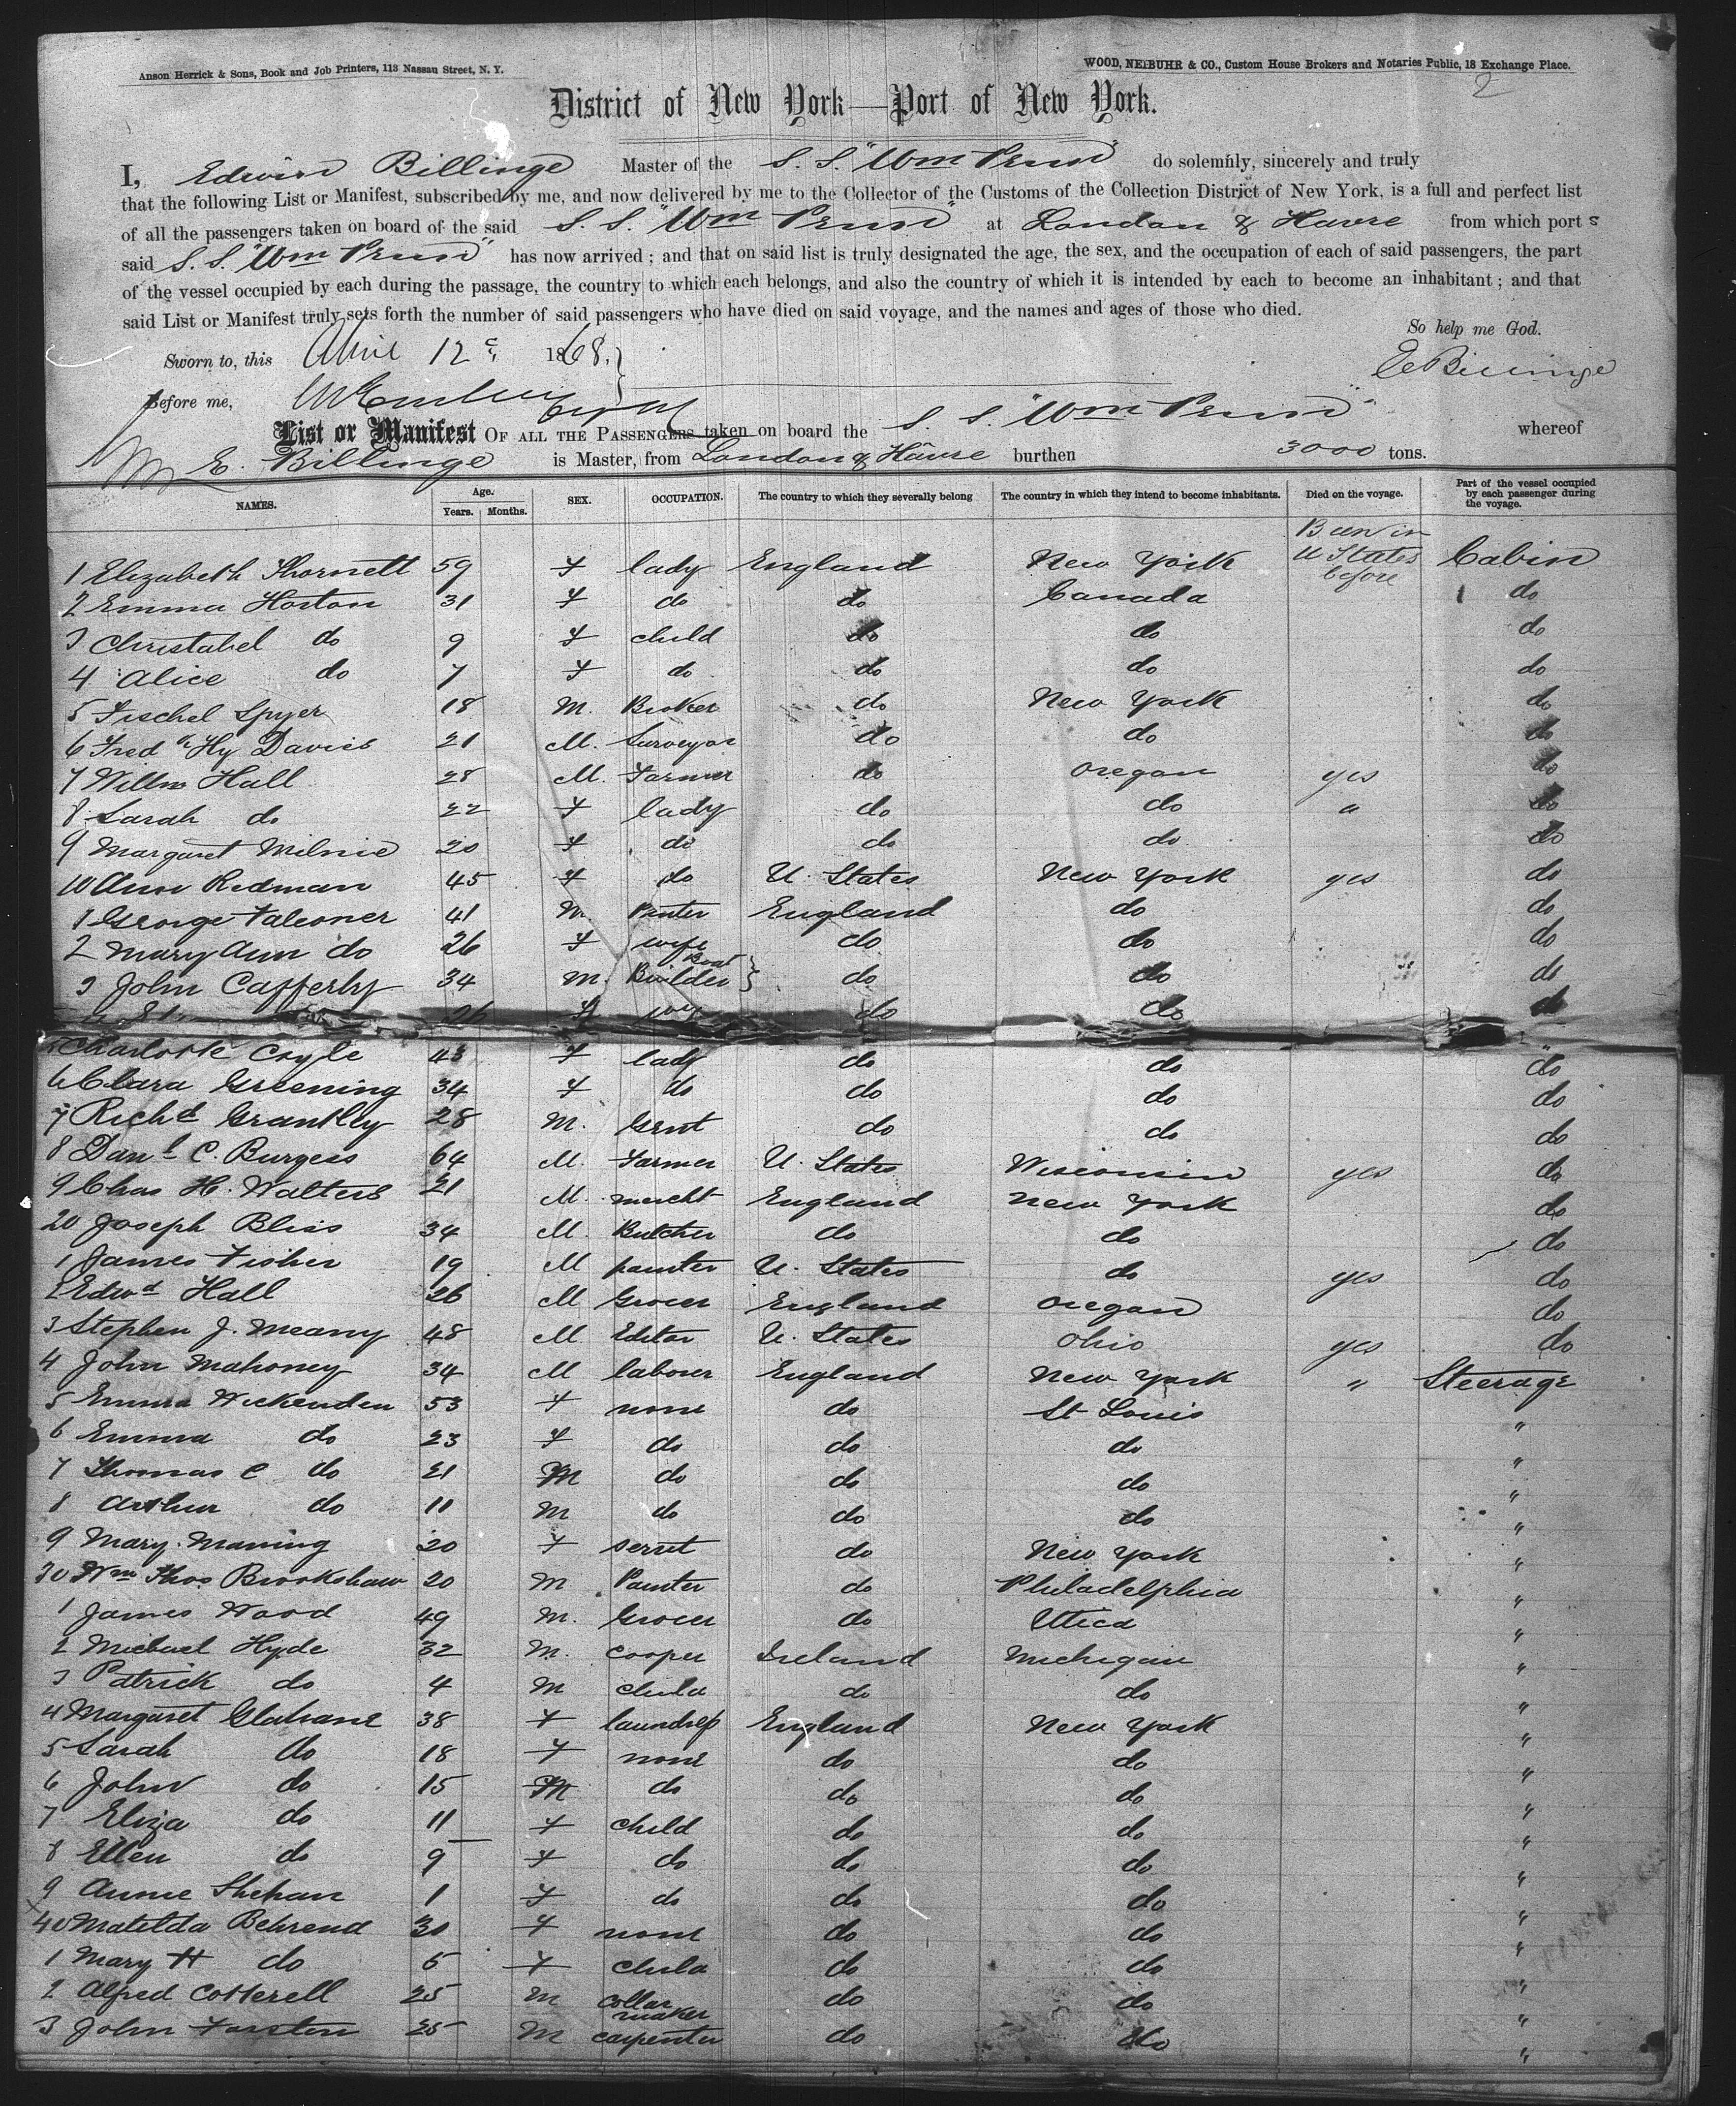 Anson Herrick & Sons, Book and Job Printers, 113 Nassau Street, N. Y.
WOOD, NEIBUHR & CO., Custom House Brokers and Notaries Public, 18 Exchange Place.
2
District of New York—Port of New York.
I, Edwin Billinge Master of the S. S. "Wm Penn" do solemnly, sincerely and truly
that the following List or Manifest, subscribed by me, and now delivered by me to the Collector of the Customs of the Collection District of New York, is a full and perfect list
of all the passengers taken on board of the said S. S. "Wm Penn" at London & Havre from which port s
said S. S. "Wm Penn" has now arrived; and that on said list is truly designated the age, the sex, and the occupation of each of said passengers, the part
of the vessel occupied by each during the passage, the country to which each belongs, and also the country of which it is intended by each to become an inhabitant; and that
said List or Manifest truly sets forth the number of said passengers who have died on said voyage, and the names and ages of those who died.
So help me God.
Sworn to, this April 12 1868.
E Billinge
Before me,
List or Manifest OF ALL THE PASSENGERS taken on board the S. S. "Wm Penn" whereof
E. Billinge is Master, from London & Havre burthen 3000 tons.
NAMES. Age. Years. Months. SEX. OCCUPATION. The country to which they severally belong The country in which they intend to become inhabitants. Died on the voyage. Part of the vessel occupied by each passenger during the voyage.
Been in U States before
1 Elizabeth Thornett 59 F lady England New York Cabin
2 Emma Horton 31 F do do Canada do
3 Christabel do 9 F child do do do
4 Alice do 7 F do do do do
5 Fischel Spyer 18 M. Broker do New York do
6 Fredk Hy Davies 21 M. Surveyor do do do
7 Willm Hall 28 M. Farmer do Oregon yes do
8 Sarah do 22 F lady do do " do
9 Margaret Milnie 20 F do do do do
10 Ann Redman 45 F do U. States New York yes do
1 George Falconer 41 M. Painter England do do
2 Mary Ann do 26 F wife do do do
3 John Cafferby 34 M. Boat Builder } do do do
26 F do do do
5 Charlotte Coyle 43 F lady do do do
6 Clara Greening 34 F do do do do
7 Richd Grantley 28 M. Gent do do do
8 Danl C. Burgess 64 M. Farmer U. States Wisconsin yes do
9 Chas H. Walters 21 M. mercht England New York do
20 Joseph Bliss 34 M. Butcher do do do
1 James Fisher 19 M painter U. States do yes do
2 Edwd Hall 26 M Grocer England Oregon do
3 Stephen J. Meany 48 M Editor U. States Ohio yes do
4 John Mahoney 34 M laborer England New York " Steerage
5 Emma Wickenden 53 F none do St Louis "
6 Emma do 23 F do do do "
7 Thomas C do 21 M do do do "
8 Arthur do 11 M do do do "
9 Mary Maning 20 F servt do New York "
30 Wm Thos Brookshaw 20 M Painter do Philadelphia "
1 James Wood 49 M. Grocer do Utica "
2 Michael Hyde 32 M. Cooper Ireland Michigan "
3 Patrick do 4 M child do do "
4 Margaret 38 F laundress England New York "
5 Sarah do 18 F none do do "
6 John do 15 M do do do "
7 Eliza do 11 F child do do "
8 Ellen do 9 F do do do "
9 Annie Shehan 1 F do do do "
40 Matilda Behrend 30 F none do do "
1 Mary H do 5 F child do do "
2 Alfred Cotterell 25 M collar maker do do "
3 John 25 M carpenter do do "